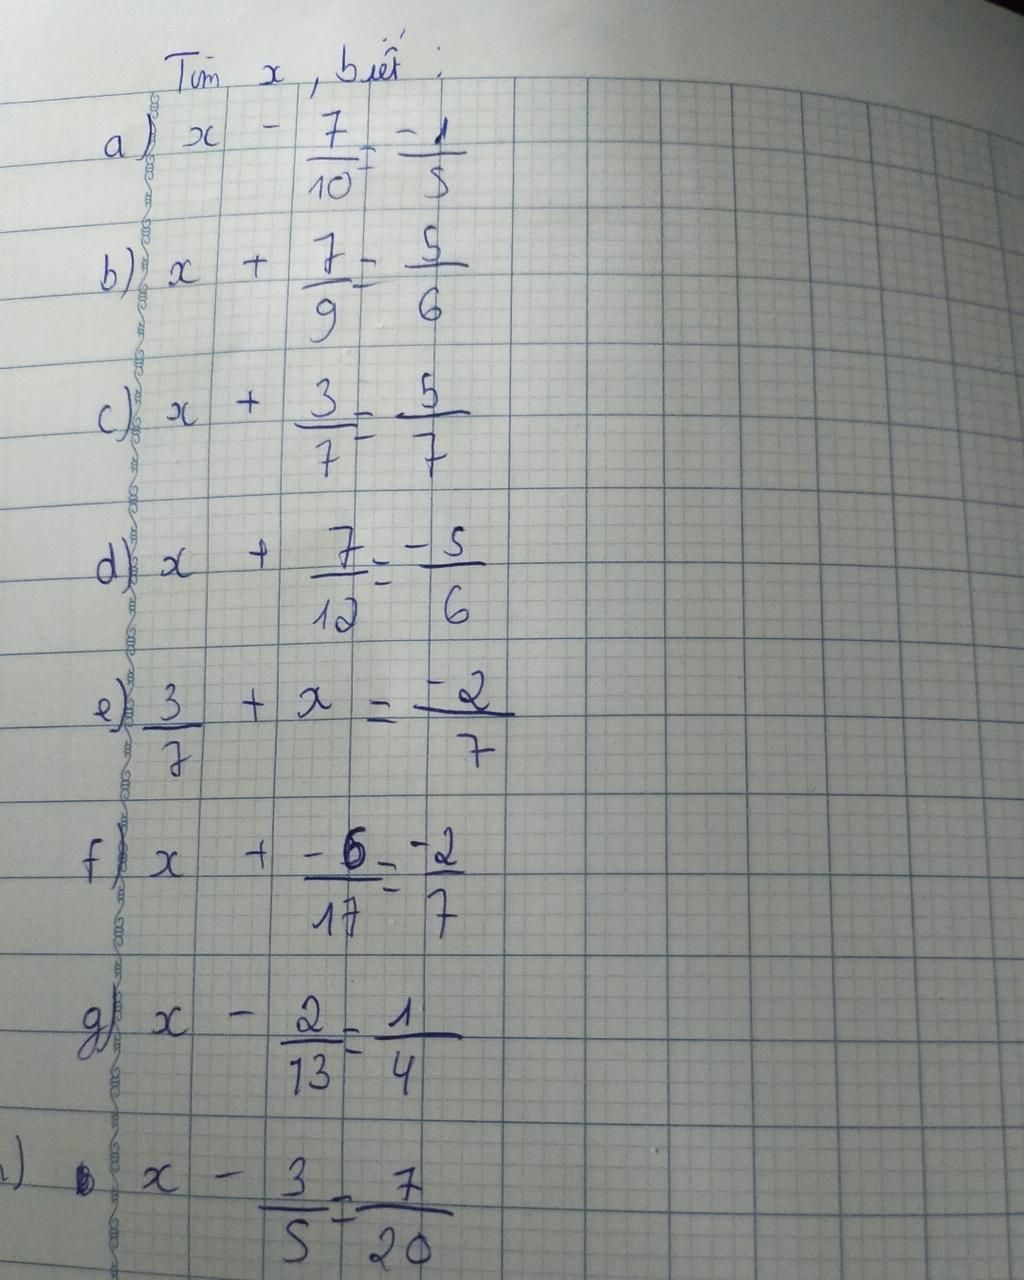 Tìm x, biết :
a) x - 7/10 = -1/5
b) x + 7/9 = 5/6
c) x + 3/7 = 5/7
d) x + 7/12 = -5/6
e) 3/7 + x = -2/7
f) x + -6/17 = -2/7
g) x - 2/13 = 1/4
) x - 3/5 = 7/20